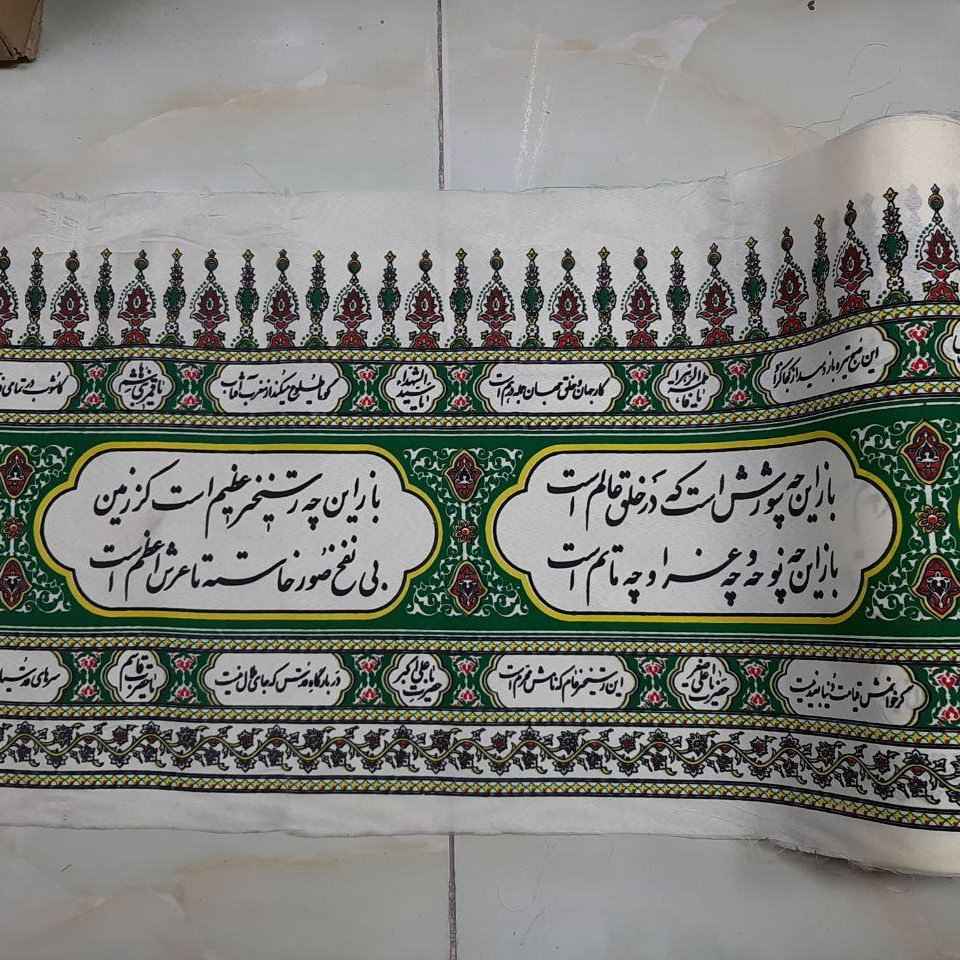 این صبح تیره باز دمید از کجا کزو
یا فاطمة الزهراء
کار جهان و خلق جهان جمله درهم است
یا سیدالشهداء
گویا طلوع میکند از مغرب آفتاب
یا قمر بنی هاشم
کاشوب در تمامی
باز این چه شورش است که در خلق عالم است
باز این چه نوحه و چه عزا و چه ماتم است
باز این چه رستخیز عظیم است کز زمین
بی نفخ صور خاسته تا عرش اعظم است
گر خوانمش قیامت دنیا بعید نیست
حضرت یا علی اصغر
این رستخیز عام که نامش محرم است
حضرت یا علی اکبر
در بارگاه قدس که جای ملال نیست
یا حضرت قاسم
سرهای قدسیان